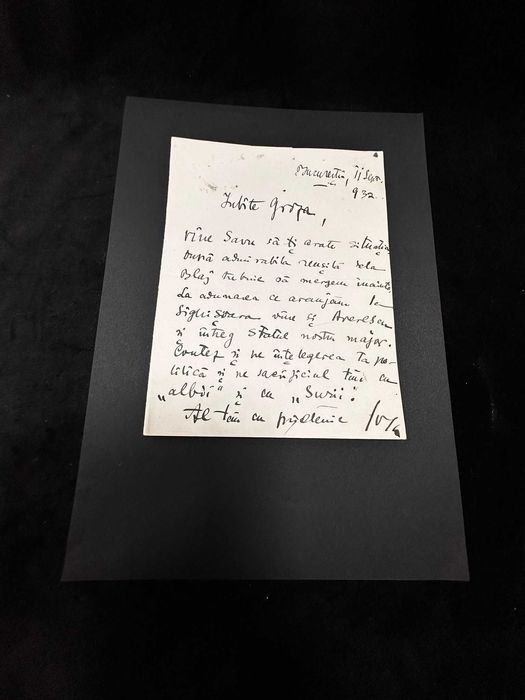 București, 11 Sept.
932.
Iubite Groza,
vine Savu să ți arate situația
După admirabila reușită dela
Blaj trebuie să mergem înainte.
La adunarea ce aranjăm la
Sighișoara vine și Averescu
și întreg statul nostru major.
Contez și pe înțelegerea ta po-
litică și pe sacrificiul tău cu
„albii" și cu „surii".
Al tău cu prietenie